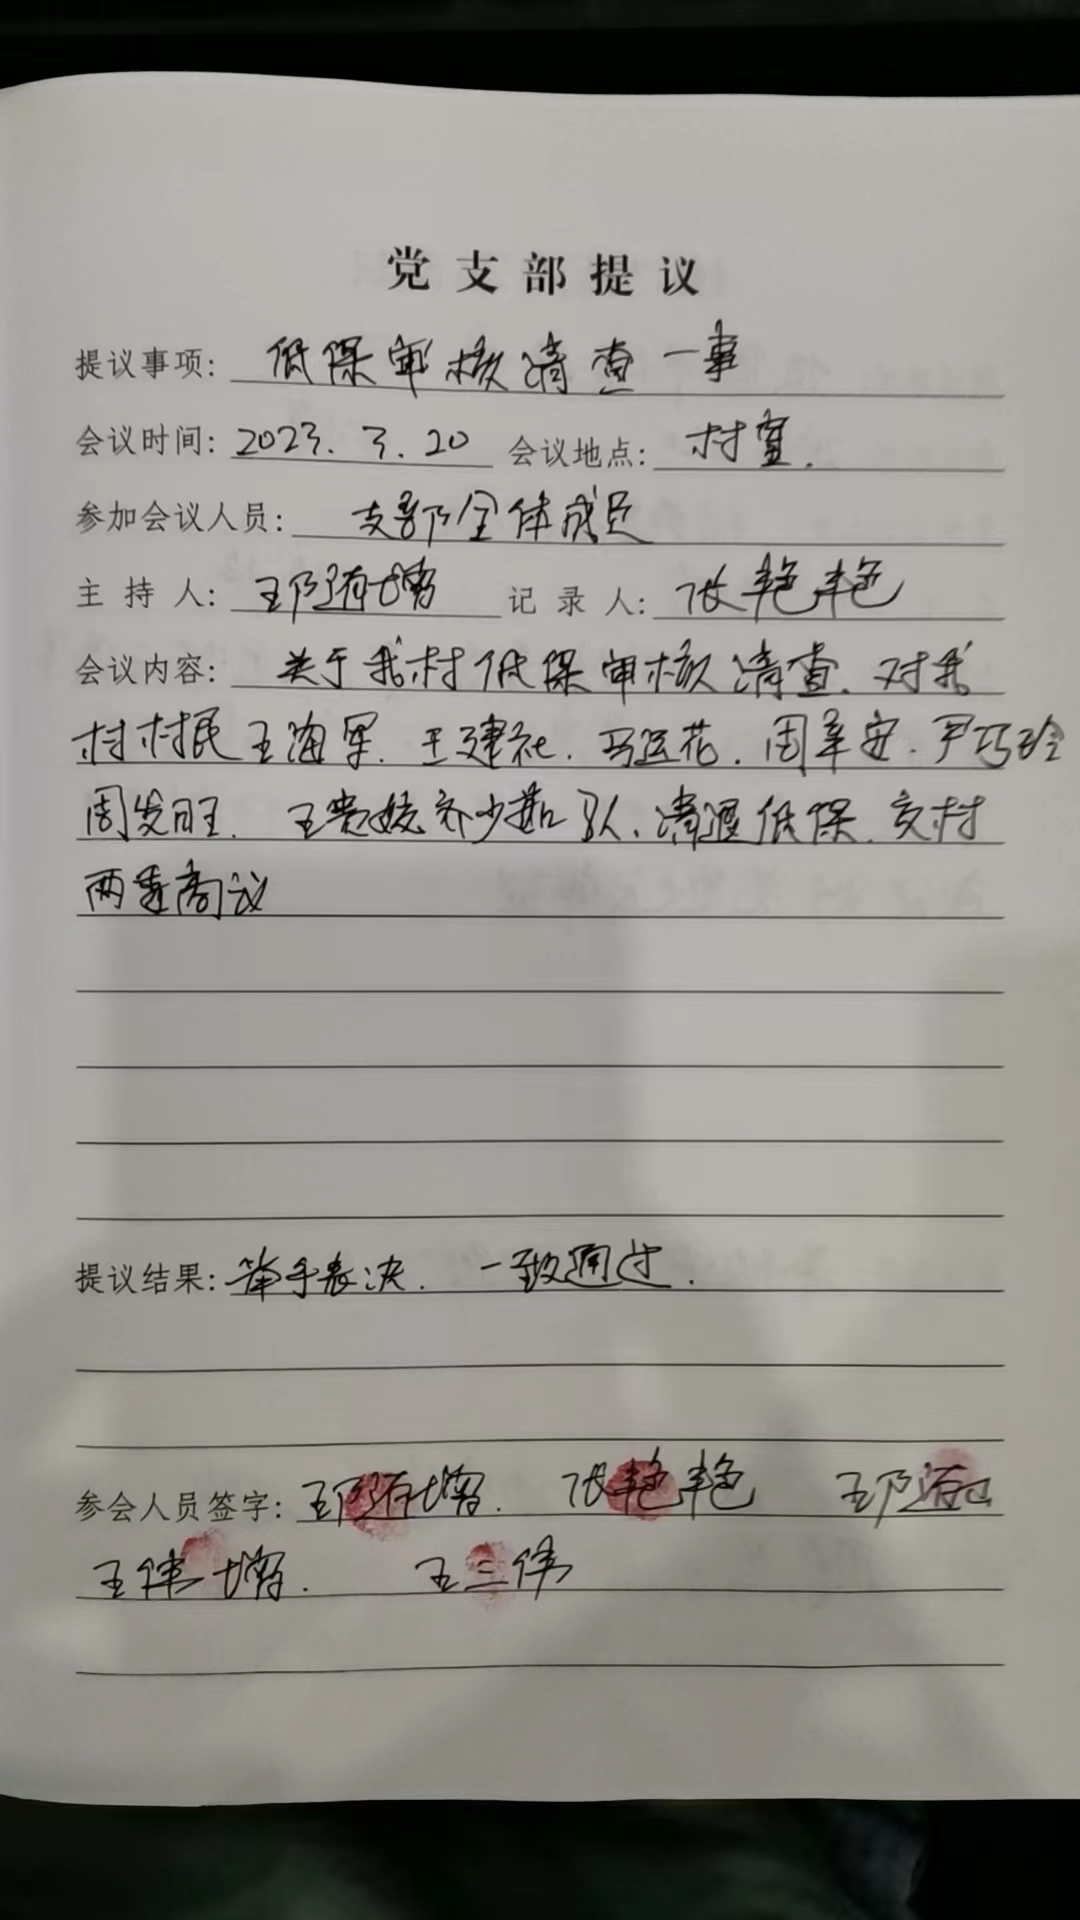 党支部提议
提议事项: 低保审核清查一事
会议时间: 2023.3.20 会议地点: 村室.
参加会议人员: 支部全体成员
主持人: 王 增 记录人: 张艳艳
会议内容: 关于我村低保审核清查.对我
村村民王海军.王建社.马运花.周章安.尹巧玲
周发旺. 王贵 清退低保.交村
两委商议
提议结果: 举手表决. 一致通过.
参会人员签字: 王 增. 张艳艳 王
王伟增. 王三伟